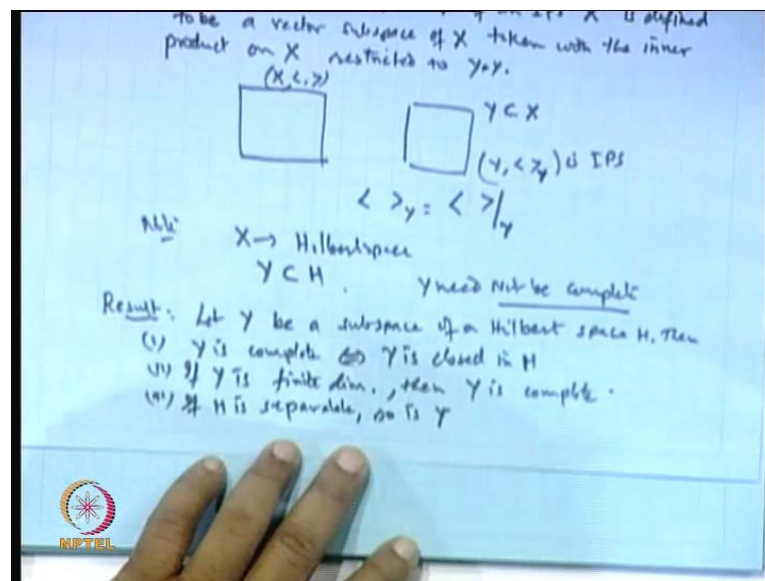 to be a vector subspace of X taken with the inner
product on X restricted to Y×Y.
(X, < , >)
Y ⊂ X
(Y, < >_Y) is IPS
< >_Y = < >/_Y
Note X → Hilbert space
Y ⊂ H. Y need Not be complete
Result: Let Y be a subspace of a Hilbert space H. Then
(i) Y is complete ⇔ Y is closed in H
(ii) If Y is finite dim., then Y is complete.
(iii) If H is separable, so is Y
NPTEL